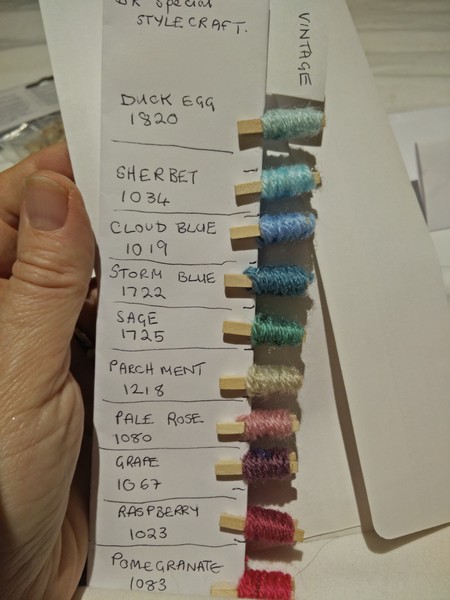 DK Special
STYLECRAFT.
VINTAGE
DUCK EGG
1820
SHERBET
1034
CLOUD BLUE
1019
STORM BLUE
1722
SAGE
1725
PARCHMENT
1218
PALE ROSE
1080
GRAPE
1067
RASPBERRY
1023
POMEGRANATE
1083